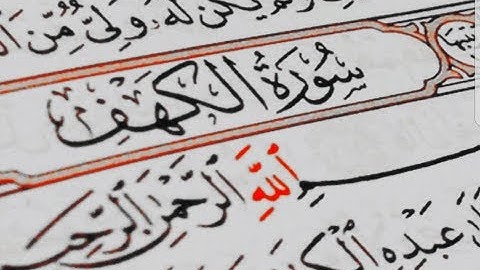 يَكُن لَّهُۥ وَلِىٌّ مِّنَ
سُورَةُ الكَهْفِ
ٱللَّهِ ٱلرَّحْمَٰنِ ٱلرَّحِي
عَبْدِهِ ٱلْكِ